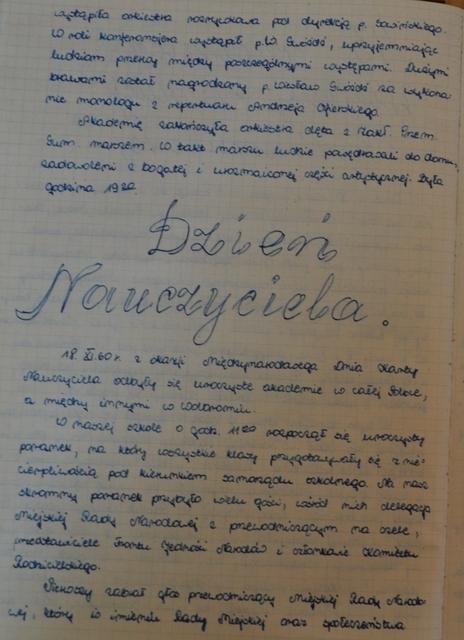 wystąpiła orkiestra rozrywkowa pod dyrekcją p. Sawińskiego.
W roli konferansjera wystąpił p. W. Swóść, uprzyjemniając
ludziom przerwy między poszczególnymi występami. Dużymi
brawami został nagrodzony p. Wiesław Swóść za wykona
nie monologu z repertuaru Andrzeja
Akademię zakończyła orkiestra dęta z Zakł. Przem.
Gum. marszem. W takt marszu ludzie powędrowali do domu,
zadowoleni z bogatej i urozmaiconej części artystycznej. Była
godzina 19²⁰.
Dzień
Nauczyciela.
18.XI.60 r. z okazji Międzynarodowego Dnia Karty
Nauczyciela odbyły się uroczyste akademie w całej Polsce,
a między innymi w Wolbromiu.
W naszej szkole o godz. 11²⁰ rozpoczął się uroczysty
poranek, na który wszystkie klasy przygotowywały się z nie-
cierpliwością pod kierunkiem samorządu szkolnego. Na nasz
skromny poranek przybyło wielu gości, wśród nich delegacja
Miejskiej Rady Narodowej z przewodniczącym na czele,
przedstawiciele Frontu Jedności Narodów i członkowie Komitetu
Rodzicielskiego.
Pierwszy zabrał głos przewodniczący Miejskiej Rady Narodo-
wej, który w imieniu Rady Miejskiej oraz społeczeństwa